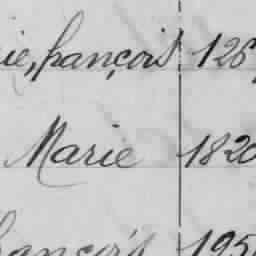 ie, françois 126
Marie 1820
françois 195